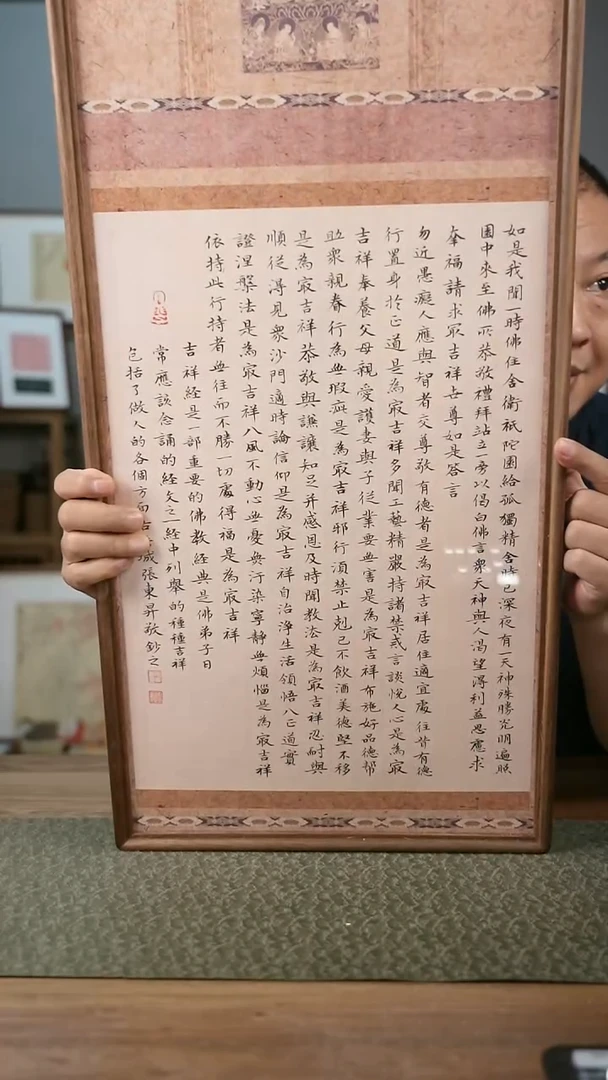 如是我聞一時佛住舍衛祇陀園給孤獨精舍時已深夜有一天神殊勝光明遍照
園中來至佛所恭敬禮拜站立一旁以偈白佛言衆天神與人渴望得利益思慮求
幸福請求冣吉祥世尊如是答言
勿近愚癡人應與智者交尊敬有德者是為冣吉祥居住適宜處往昔有德
行置身於正道是為冣吉祥多聞工藝精嚴持諸禁戒言談悅人心是為冣
吉祥奉養父母親愛護妻與子從業要無害是為冣吉祥布施好品德幫
助衆親眷行為無瑕疵是為冣吉祥邪行須禁止剋己不飲酒美德堅不移
是為冣吉祥恭敬與謙讓知足并感恩及時聞教法是為冣吉祥忍耐與
順從得見衆沙門適時論信仰是為冣吉祥自治淨生活領悟八正道實
證涅槃法是為冣吉祥八風不動心無憂無汙染寧静無煩惱是為冣吉祥
依持此行持者無往而不勝一切處得福是為冣吉祥
吉祥經是一部重要的佛教經典是佛弟子日
常應該念誦的經文之一經中列舉的種種吉祥
包括了做人的各個方面 張東昇敬鈔之